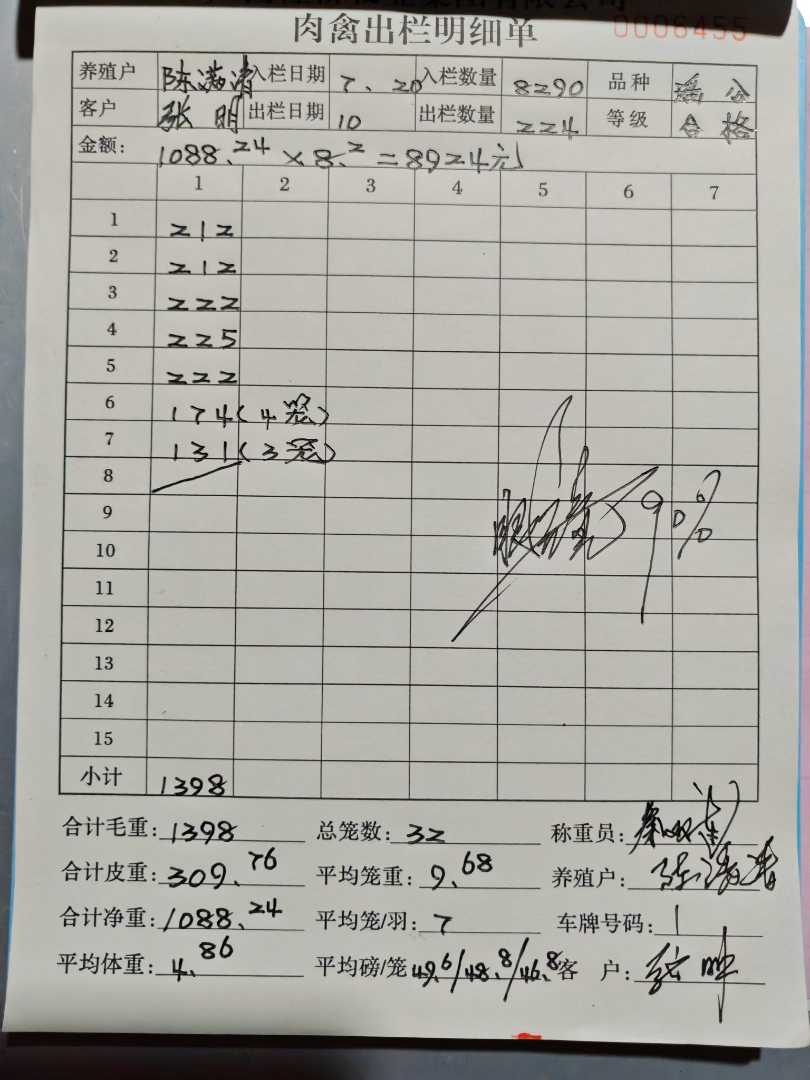 肉禽出栏明细单 0006455
养殖户 陈满清 入栏日期 7.20 入栏数量 8290 品种 瑶公
客户 张明 出栏日期 10 出栏数量 224 等级 合格
金额: 1088.24×8.2=8924元
1 2 3 4 5 6 7
1 212
2 212
3 222
4 225
5 222
6 174(4笼)
7 131(3笼)
8
9 90%
10
11
12
13
14
15
小计 1398
合计毛重: 1398 总笼数: 32 称重员:
合计皮重: 309.76 平均笼重: 9.68 养殖户: 陈满清
合计净重: 1088.24 平均笼/羽: 7 车牌号码: 1
平均体重: 4.86 平均磅/笼 49.6/48.8/46.8 客户: 张明